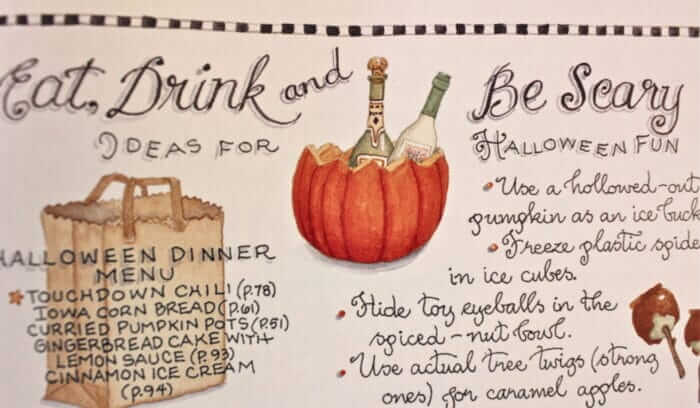 Eat, Drink and Be Scary
IDEAS FOR HALLOWEEN FUN
HALLOWEEN DINNER
MENU
TOUCHDOWN CHILI (P.78)
IOWA CORN BREAD (P.61)
CURRIED PUMPKIN POTS (P.51)
GINGERBREAD CAKE WITH
LEMON SAUCE (P.93)
CINNAMON ICE CREAM
(P.94)
Use a hollowed-out
pumpkin as an ice buck
Freeze plastic spide
in ice cubes.
Hide toy eyeballs in the
spiced-nut bowl.
Use actual tree twigs (strong
ones) for caramel apples.